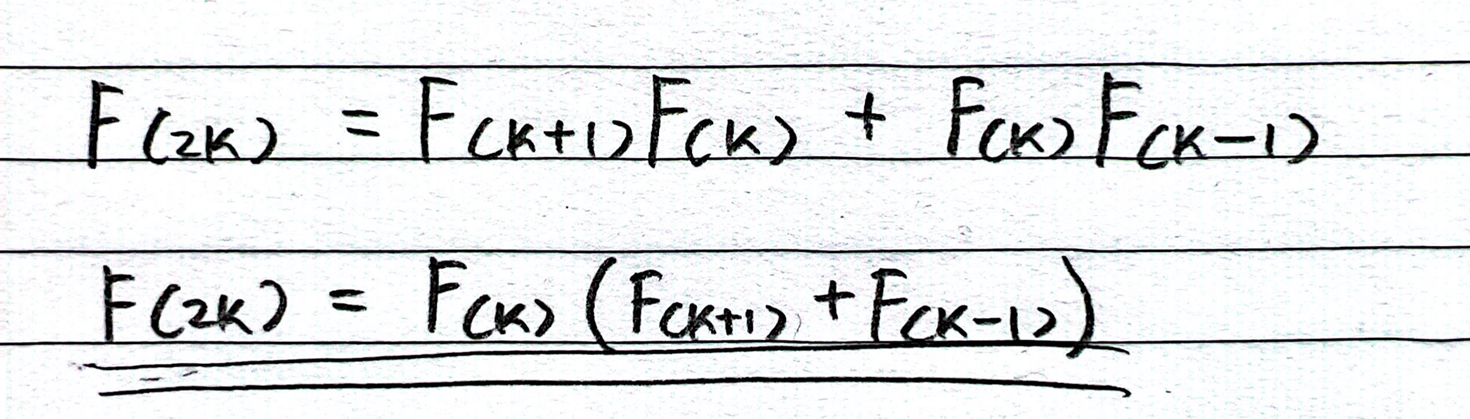 F(2K) = F(K+1)F(K) + F(K)F(K-1)
F(2K) = F(K)(F(K+1) + F(K-1))